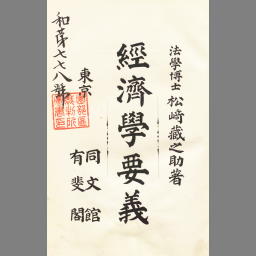 法學博士 松崎藏之助著
經濟學要義
東京
同文館
有斐閣
和第七七八號